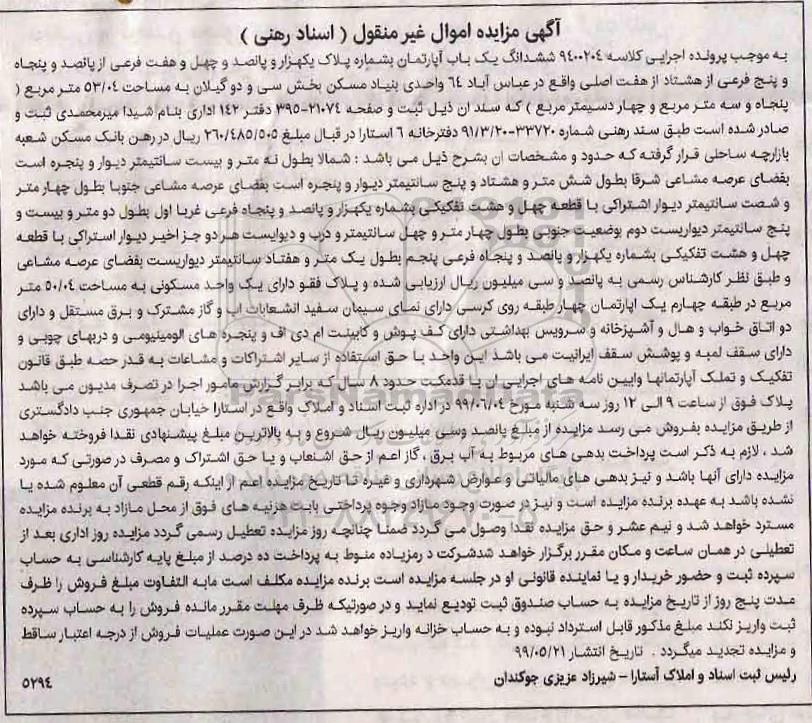 آگهی مزایده اموال غیر منقول ( اسناد رهنی )
به موجب پرونده اجرایی کلاسه ۹۴۰۰۲۰۴ ششدانگ یک باب آپارتمان بشماره پلاک یکهزار و پانصد و چهل و هفت فرعی از پانصد و پنجاه
و پنج فرعی از هشتاد از هفت اصلی واقع در عباس آباد ۶۴ واحدی بنیاد مسکن بخش سی و دو گیلان به مساحت ۵۳/۰۴ متر مربع (
پنجاه و سه متر مربع و چهار دسیمتر مربع ) که سند ان ذیل ثبت و صفحه ۲۱۰۷۴-۳۹۵ دفتر ۱۴۲ اداری بنام شیدا میرمحمدی ثبت و
صادر شده است طبق سند رهنی شماره ۳۳۷۲۰-۹۱/۳/۲۰ دفترخانه ۶ استارا در قبال مبلغ ۲۶۰/۴۸۵/۵۰۵ ریال در رهن بانک مسکن شعبه
بازارچه ساحلی قرار گرفته که حدود و مشخصات ان بشرح ذیل می باشد : شمالا بطول نه متر و بیست سانتیمتر دیوار و پنجره است
بفضای عرصه مشاعی شرقا بطول شش متر و هشتاد و پنج سانتیمتر دیوار و پنجره است بفضای عرصه مشاعی جنوبا بطول چهار متر
و شصت سانتیمتر دیوار اشتراکی با قطعه چهل و هشت تفکیکی بشماره یکهزار و پانصد و پنجاه فرعی غربا اول بطول دو متر و بیست و
پنج سانتیمتر دیواریست دوم بوضعیت جنوبی بطول چهار متر و چهل سانتیمتر و درب و دیوایست هر دو جز اخیر دیوار استراکی با قطعه
چهل و هشت تفکیکی بشماره یکهزار و پانصد و پنجاه فرعی پنجم بطول یک متر و هفتاد سانتیمتر دیواریست بفضای عرصه مشاعی
و طبق نظر کارشناس رسمی به پانصد و سی میلیون ریال ارزیابی شده و پلاک فقو دارای یک واحد مسکونی به مساحت ۵۰/۰۴ متر
مربع در طبقه چهارم یک اپارتمان چهار طبقه روی کرسی دارای نمای سیمان سفید انشعابات اب و گاز مشترک و برق مستقل و دارای
دو اتاق خواب و هال و آشپزخانه و سرویس بهداشتی دارای کف پوش و کابینت ام دی اف و پنجره های الومینیومی و دربهای چوبی و
دارای سقف لمبه و پوشش سقف ایرانیت می باشد این واحد با حق استفاده از سایر اشتراکات و مشاعات به قدر حصه طبق قانون
تفکیک و تملک آپارتمانها وایین نامه های اجرایی ان با قدمکت حدود ۸ سال که برابر گزارش مامور اجرا در تصرف مدیون می باشد
پلاک فوق از ساعت ۹ الی ۱۲ روز سه شنبه مورخ ۹۹/۰۶/۰۴ در اداره ثبت اسناد و املاک واقع در استارا خیابان جمهوری جنب دادگستری
از طریق مزایده بفروش می رسد مزایده از مبلغ پانصد وسی میلیون ریال شروع و به بالاترین مبلغ پیشنهادی نقدا فروخته خواهد
شد ، لازم به ذکر است پرداخت بدهی های مربوط به آب برق ، گاز اعم از حق اشنعاب و یا حق اشتراک و مصرف در صورتی که مورد
مزایده دارای آنها باشد و نیز بدهی های مالیاتی و عوارض شهرداری و غیره تا تاریخ مزایده اعم از اینکه رقم قطعی آن معلوم شده یا
نشده باشد به عهده برنده مزایده است و نیز در صورت وجود مازاد وجوه پرداختی بابت هزینه های فوق از محل مازاد به برنده مزایده
مسترد خواهد شد و نیم عشر و حق مزایده نقدا وصول می گردد ضمنا چنانچه روز مزایده تعطیل رسمی گردد مزایده روز اداری بعد از
تعطیلی در همان ساعت و مکان مقرر برگزار خواهد شدشرکت د رمزیاده منوط به پرداخت ده درصد از مبلغ پایه کارشناسی به حساب
سپرده ثبت و حضور خریدار و یا نماینده قانونی او در جلسه مزایده است برنده مزایده مکلف است مابه التفاوت مبلغ فروش را ظرف
مدت پنج روز از تاریخ مزایده به حساب صندوق ثبت تودیع نماید و در صورتیکه ظرف مهلت مقرر مانده فروش را به حساب سپرده
ثبت واریز نکند مبلغ مذکور قابل استرداد نبوده و به حساب خزانه واریز خواهد شد در این صورت عملیات فروش از درجه اعتبار ساقط
و مزایده تجدید میگردد . تاریخ انتشار ۹۹/۰۵/۲۱
رئیس ثبت اسناد و املاک آستارا - شیرزاد عزیزی جوکندان ۵۲۹۴